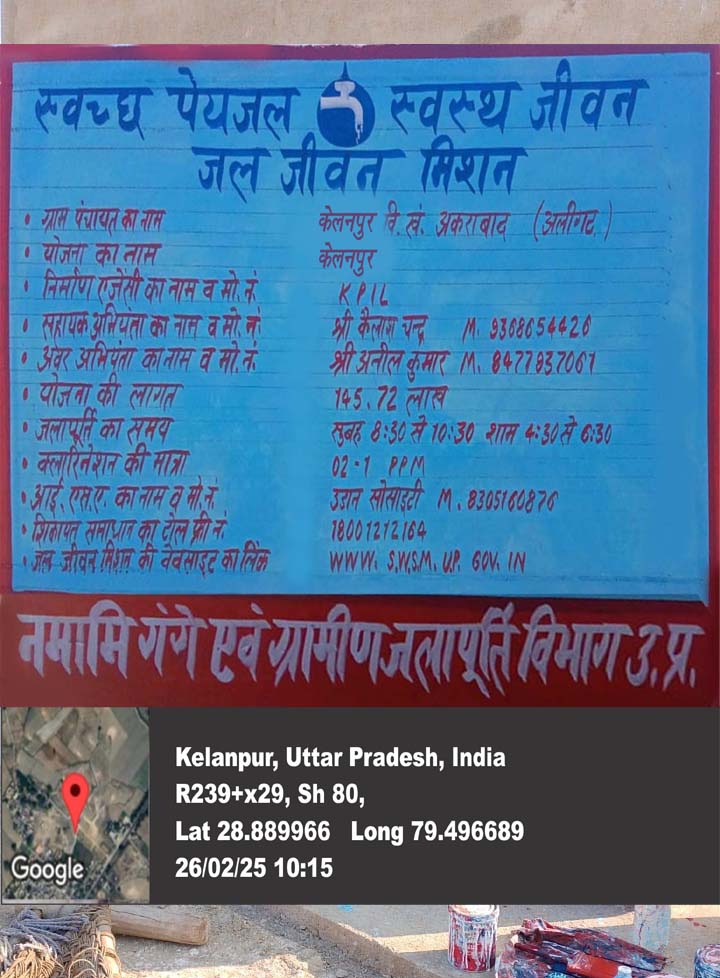 स्वच्छ पेयजल स्वस्थ जीवन
जल जीवन मिशन
• ग्राम पंचायत का नाम केलनपुर वि. खं. अकराबाद (अलीगढ़)
• योजना का नाम केलनपुर
• निर्माण एजेंसी का नाम व मो. नं. KPIL
• सहायक अभियंता का नाम व मो. नं. श्री कैलाश चन्द्र M. 9368654426
• अवर अभियंता का नाम व मो. नं. श्री अनील कुमार M. 8477937061
• योजना की लागत 145.72 लाख
• जलापूर्ति का समय सुबह 8:30 से 10:30 शाम 4:30 से 6:30
• क्लारिनेशन की मात्रा 02-1 PPM
• आई. एस. ए. का नाम व मो. नं. उडान सोसाइटी M. 8305160876
• शिकायत समाधान का टोल फ्री नं. 18001212164
• जल जीवन मिशन की वेबसाइट का लिंक WWW. S.W.S.M. U.P. GOV. IN
नमामि गंगे एवं ग्रामीण जलापूर्ति विभाग उ. प्र.
Kelanpur, Uttar Pradesh, India
R239+x29, Sh 80,
Lat 28.889966 Long 79.496689
26/02/25 10:15
Google